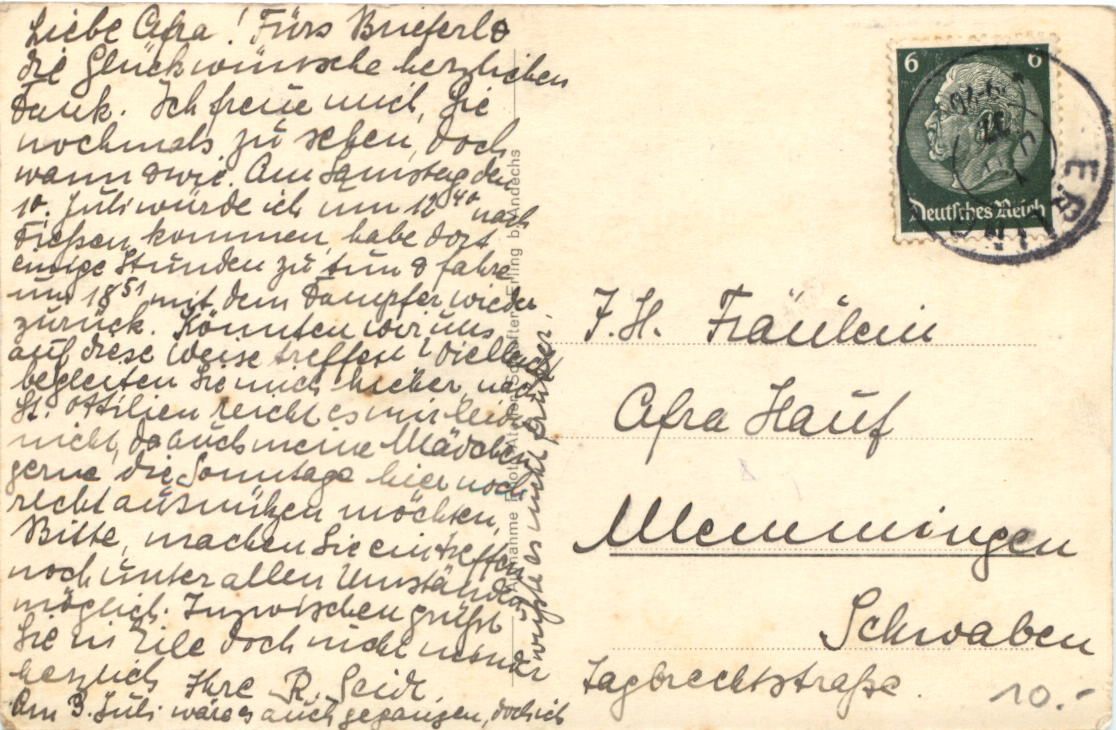 Liebe Afra! Fürs Brieferl &
die Glückwünsche herzlichen
Dank. Ich freue mich, Sie
nochmals zu sehen, doch
wann & wie. Am Samstag den
10. Juli würde ich um 12 40 nach
Dießen kommen, habe dort
einige Stunden zu tun & fahre
um 18 51 mit dem Dampfer wieder
zurück. Könnten wir uns
auf diese Weise treffen? Vielleicht
begleiten Sie mich hieher, nach
St. Ottilien reicht es mir leider
nicht, da auch meine Mädchen
gerne die Sonntage hier noch
recht ausnützen möchten,
Bitte, machen Sie ein treffen
noch unter allen Umständen
möglich. Inzwischen grüßt
Sie in Eile doch nicht minder
herzlich Ihre R. Seidl.
Am 3. Juli wäre es auch gegangen, doch ich
wußte es nicht früher.
Aufnahme Erling b. Andechs
6 6
Deutsches Reich
ERLING
F. H. Fräulein
Afra Hauf
Memmingen
Schwaben
Zagbrechtstraße.
10.-